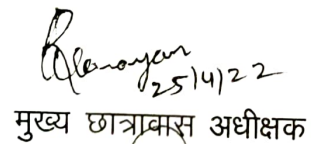 25/4/22
मुख्य छात्रावास अधीक्षक